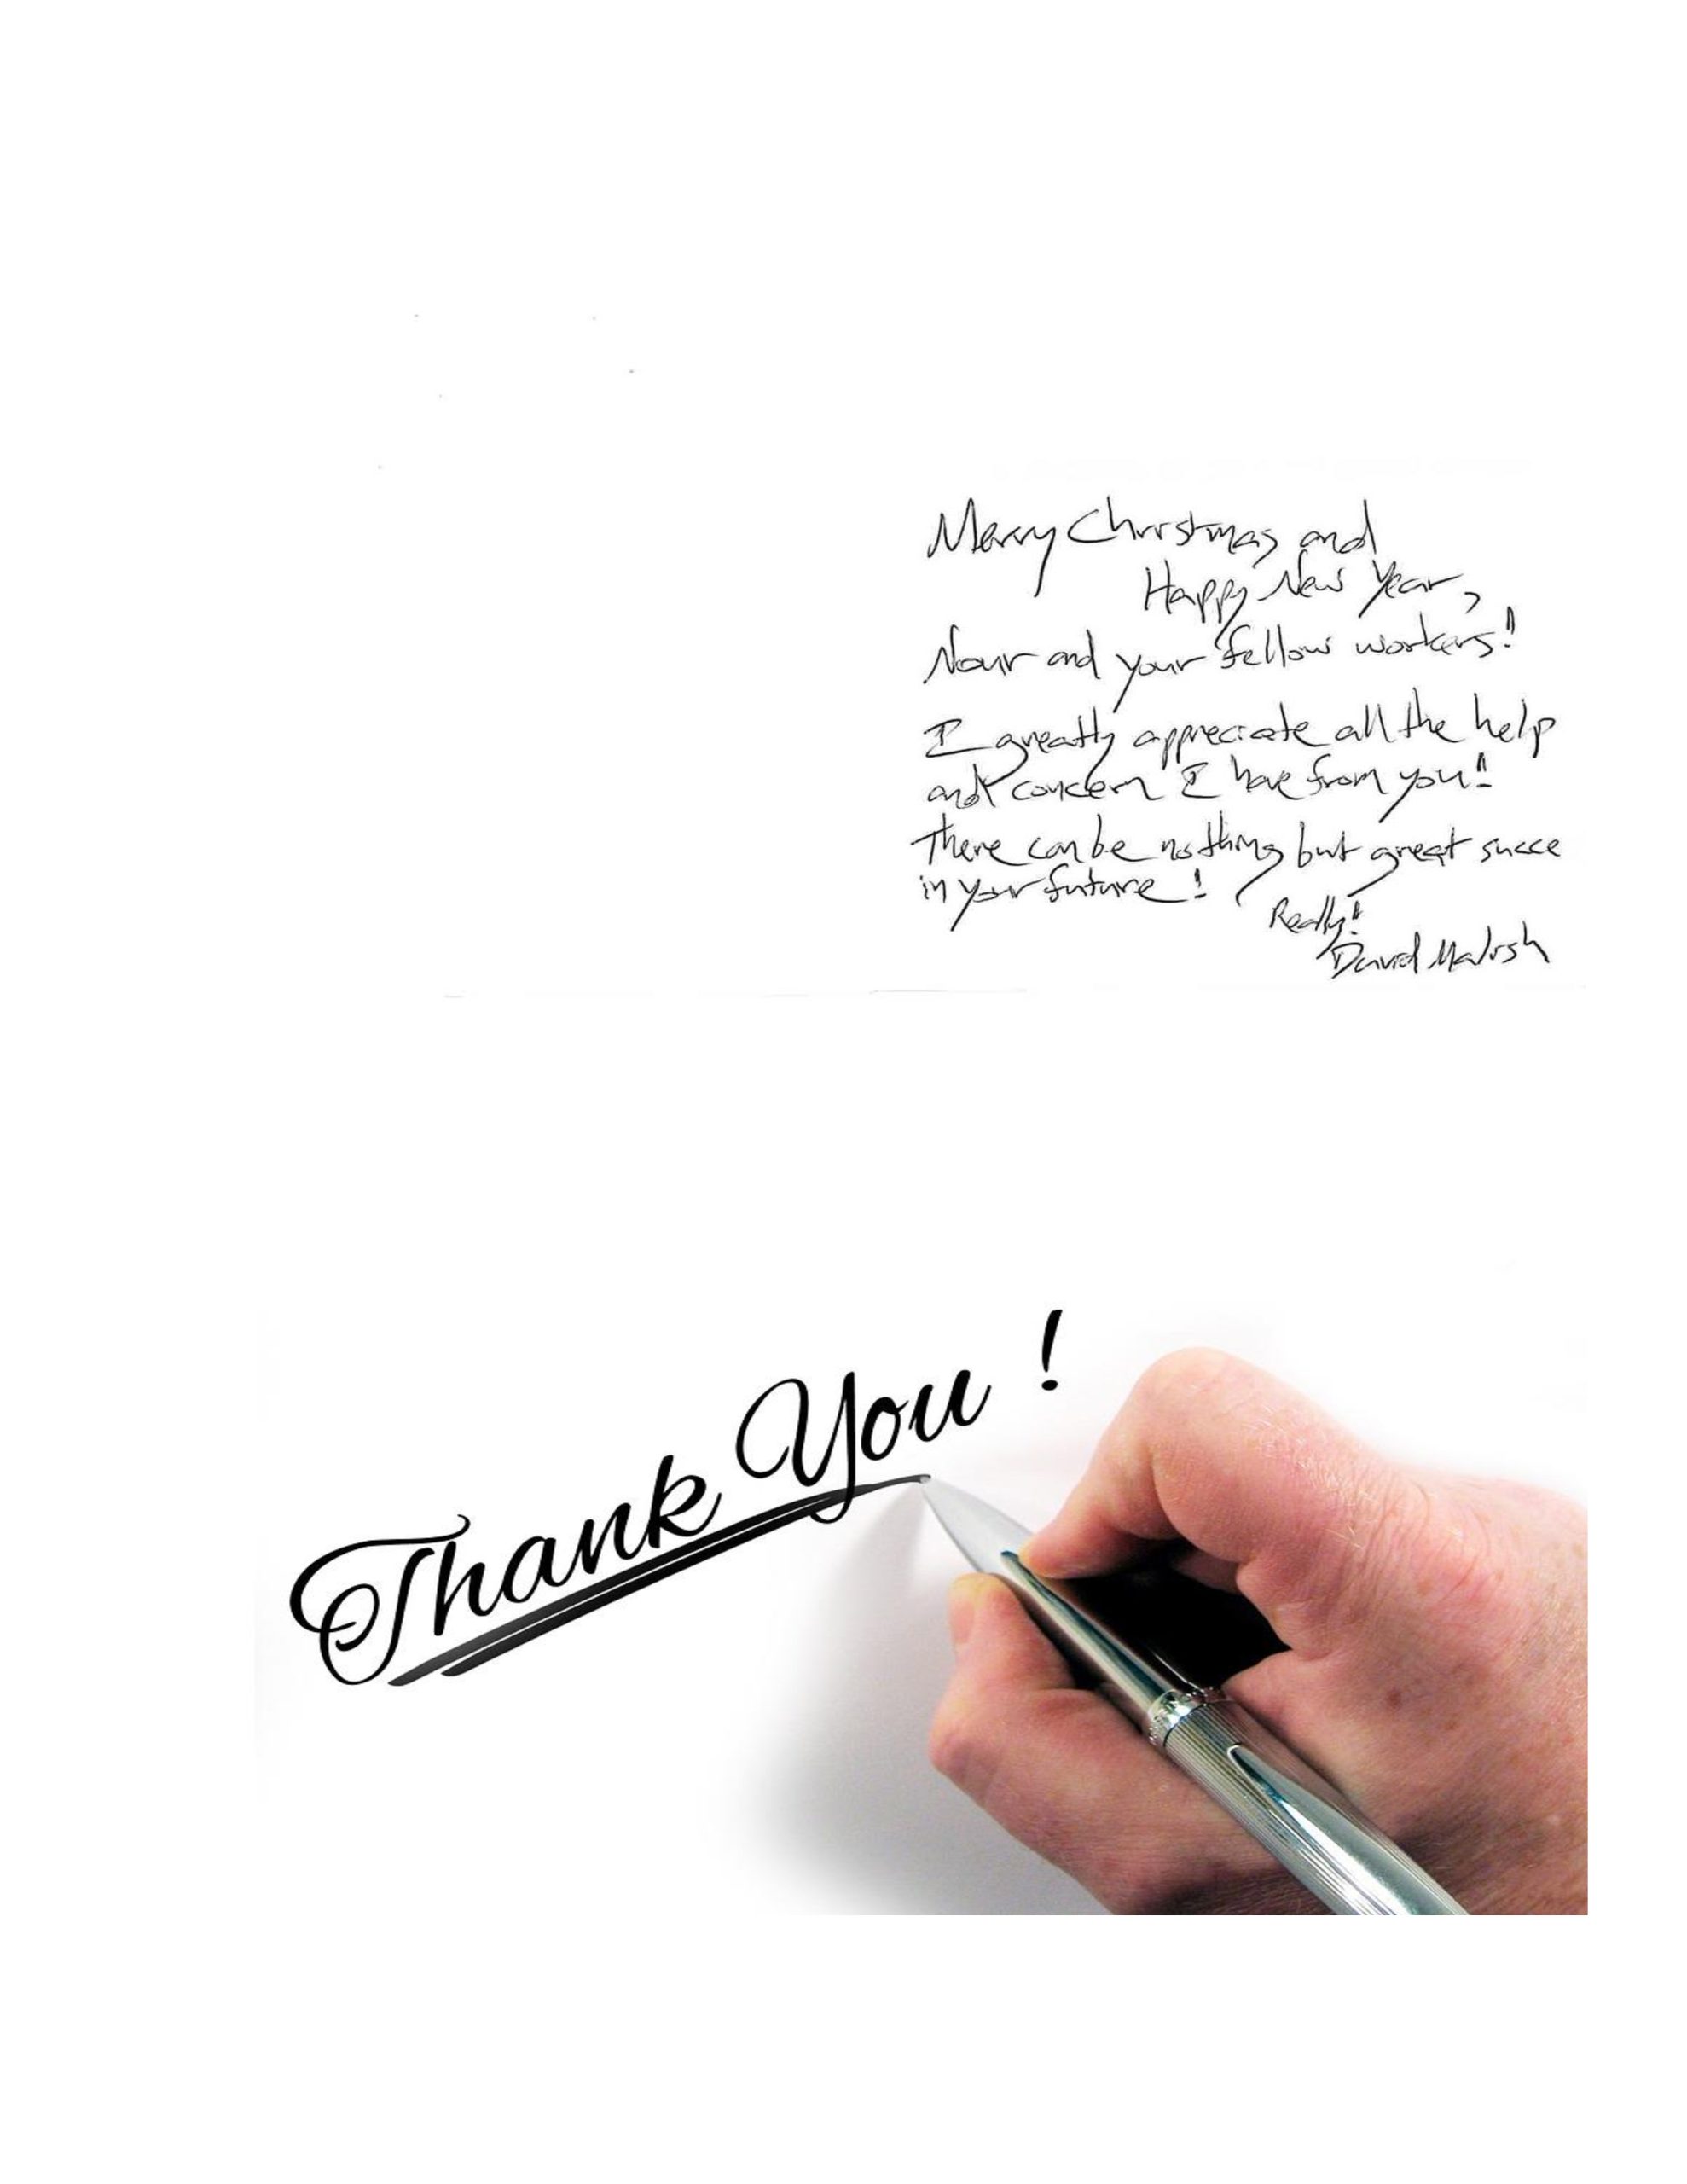 Merry Christmas and
Happy New Year,
Nour and your fellow workers!
I greatly appreciate all the help
and concern I have from you!
There can be nothing but great succe
in your future!
Really!
David
Thank You !